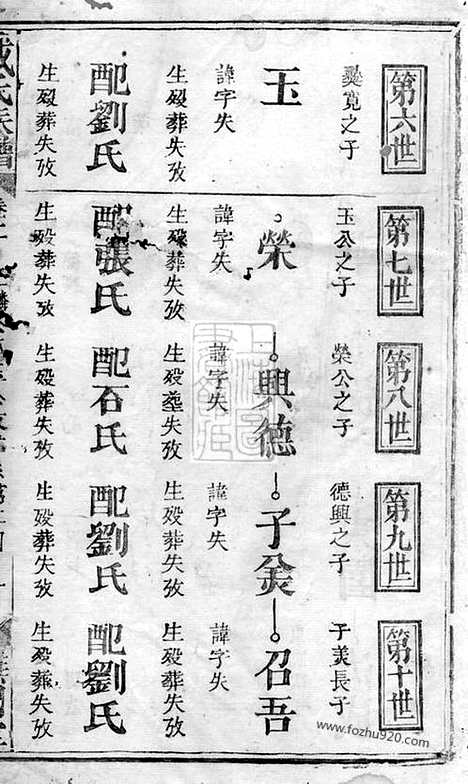 第六世
寬之子
玉
諱字失
生殁葬失攷
配劉氏
生殁葬失攷
第七世
玉公之子
榮
諱字失
生殁葬失攷
配張氏
生殁葬失攷
第八世
榮公之子
興德
諱字失
生殁葬失攷
配石氏
生殁葬失攷
第九世
德興之子
子羙
諱字失
生殁葬失攷
配劉氏
生殁葬失攷
第十世
子美長子
召吾
諱字失
生殁葬失攷
配劉氏
生殁葬失攷
氏族譜
www.fozhu920.com